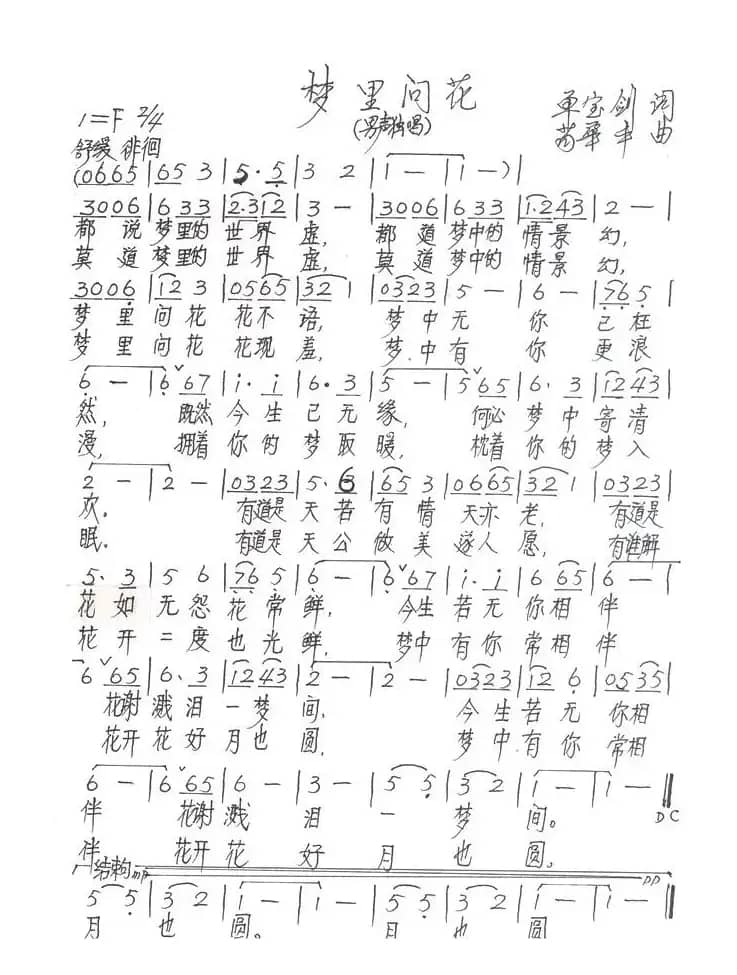 梦里问花
(男声独唱)
单宝剑 词
曲
1=F 2/4
舒缓 徘徊
(0665 | 653 | 5·5 | 3 2 | 1 — | 1 —) |
3006 | 633 | 2·312 | 3 — | 3006 | 633 | 1·243 | 2 — |
都 说 梦里的 世 界 虚, 都 道 梦中的 情 景 幻,
莫 道 梦里的 世 界 虚, 莫 道 梦中的 情 景 幻,
3006 | 12 3 | 0565 | 32 1 | 0323 | 5 — | 6 — | 76 5 |
梦 里 问 花 花不 语, 梦 中 无 你 已 枉
梦 里 问 花 花现 羞, 梦 中 有 你 更 浪
6 — | 6 67 | i· i | 6· 3 | 5 — | 5 65 | 6· 3 | 1243 |
然, 既然 今 生 已 无 缘, 何必 梦 中 寄 清
漫, 拥着 你 的 梦 取 暖, 枕着 你 的 梦 入
2 — | 2 — | 0323 | 5· 6 | 65 3 | 0665 | 32 1 | 0323 |
欢。 有道是 天 若 有 情 天亦 老, 有道是
眠。 有道是 天 公 做 美 遂人 愿, 有谁解
5· 3 | 5 6 | 76 5 | 6 — | 6 67 | i· i | 6 65 | 6 — |
花 如 无 怨 花 常 鲜, 今生 若 无 你 相 伴
花 开 二 度 也 光 鲜, 梦中 有 你 常 相 伴
6 65 | 6· 3 | 1243 | 2 — | 2 — | 0323 | 12 6 | 0535 |
花谢 溅 泪 一 梦 间, 今 生 若 无 你 相
花开 花 好 月 也 圆, 梦 中 有 你 常 相
6 — | 6 65 | 6 — | 3 — | 5 5 | 3 2 | 1 — | 1 — ‖
伴 花谢 溅 泪 一 梦 间。 DC
伴 花开 花 好 月 也 圆。
结束句 mp pp
5 5 | 3 2 | 1 — | 1 — | 5 5 | 3 2 | 1 — | 1 — ‖
月 也 圆。 月 也 圆